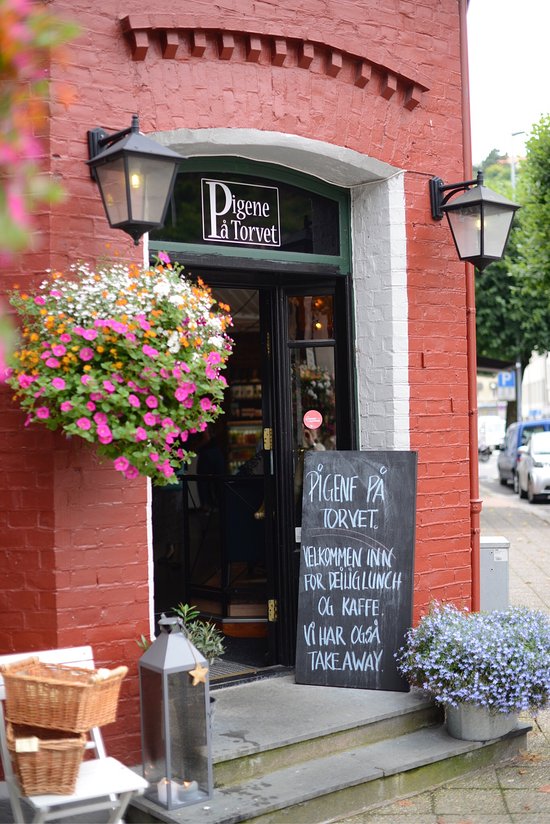 Pigene
På Torvet
PIGENE PÅ
TORVET.
VELKOMMEN INN
FOR DEILIG LUNCH
OG KAFFE.
VI HAR OGSÅ
TAKE AWAY.
P